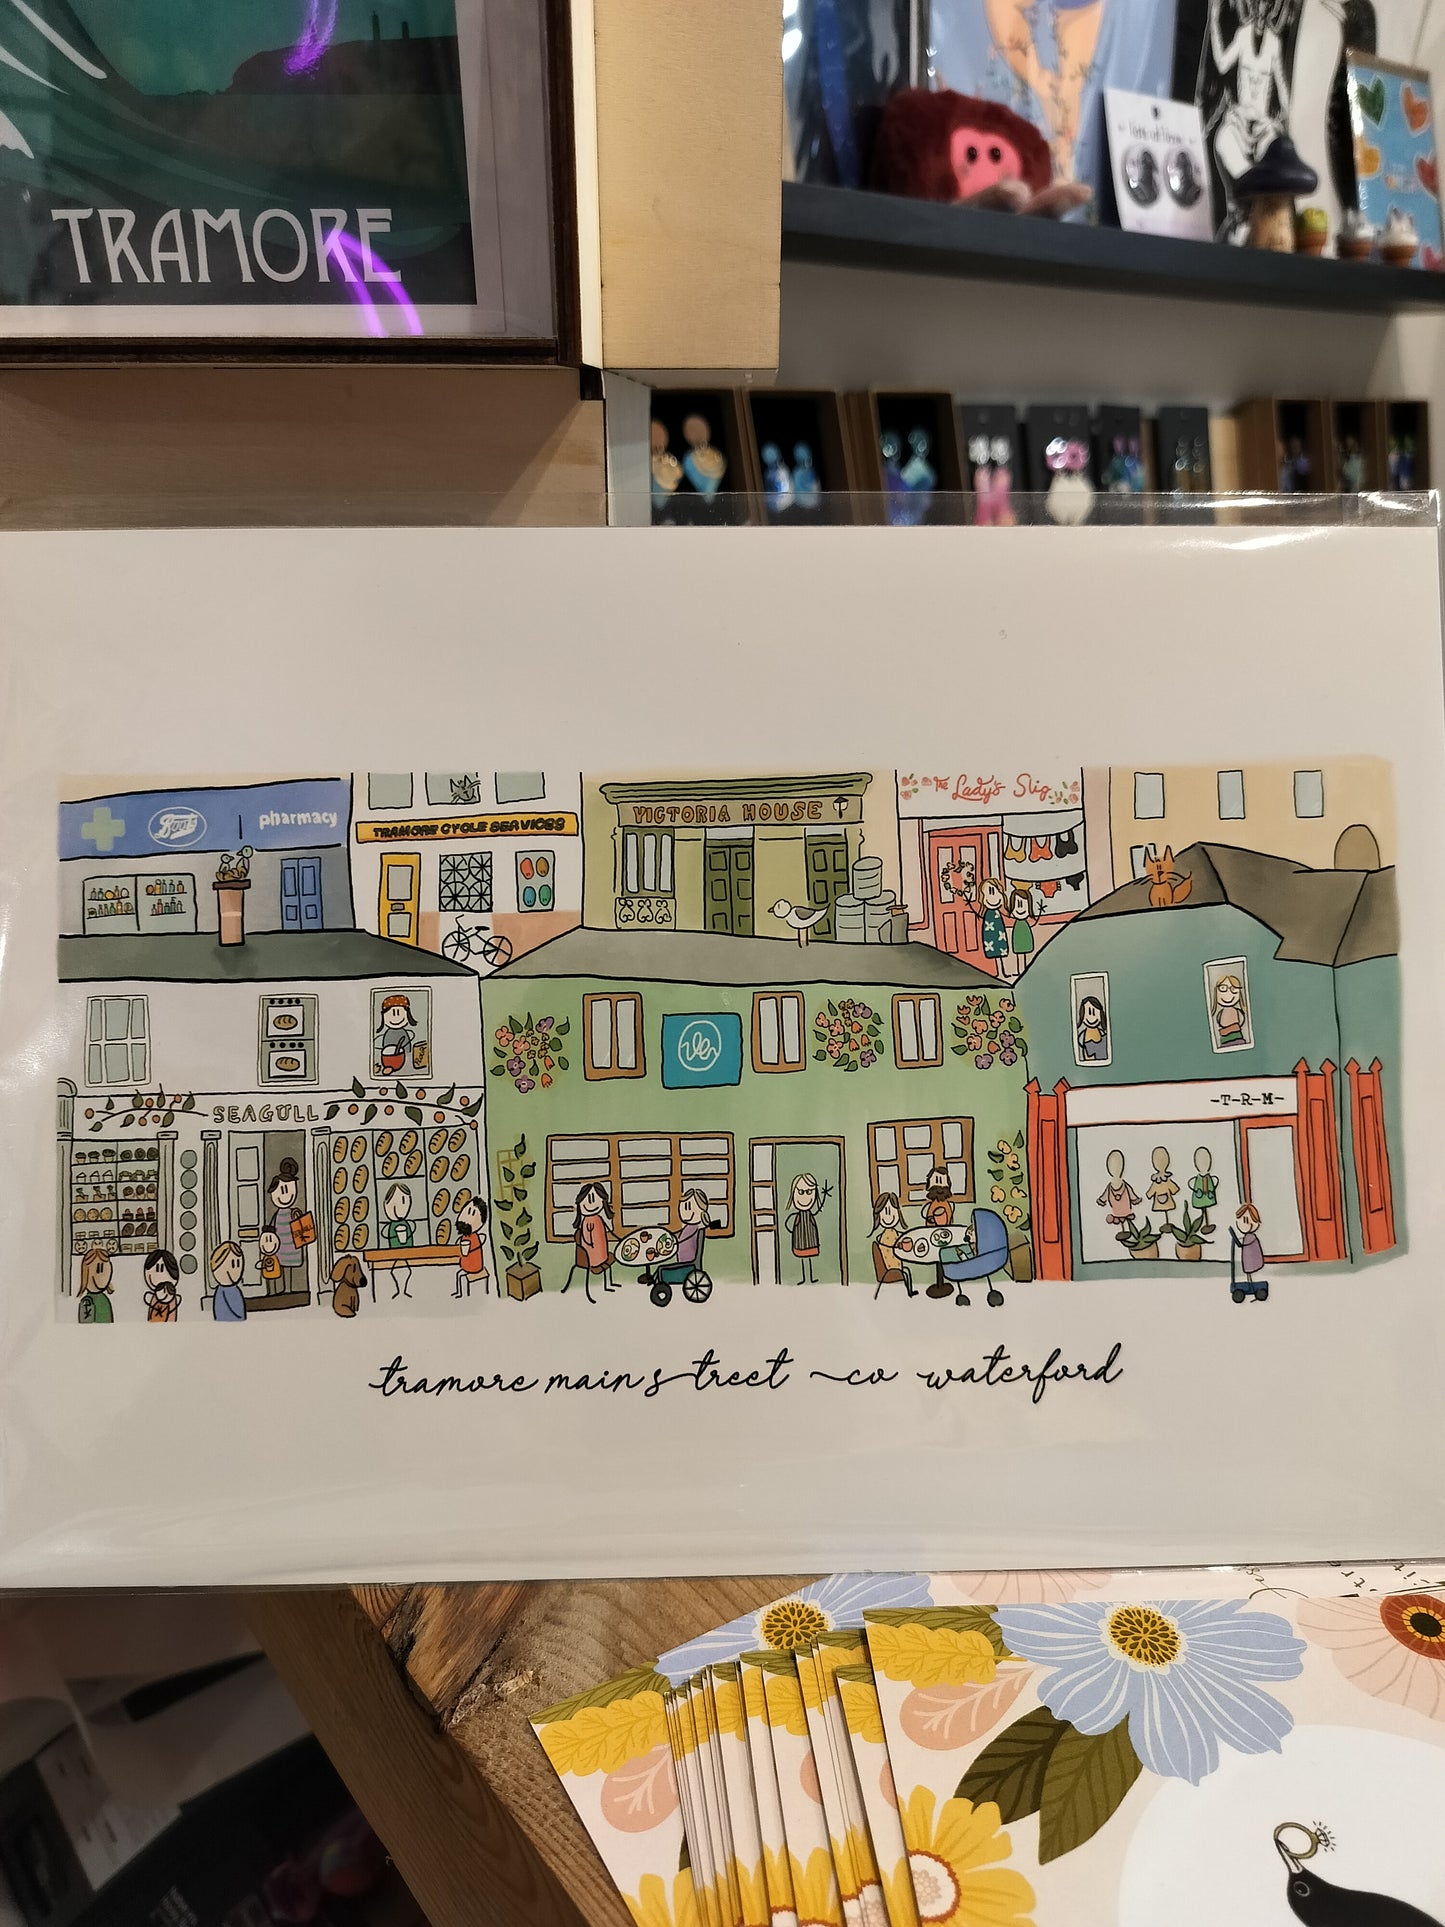 TRAMORE
lots of love
Boots
pharmacy
TRAMORE CYCLE SERVICES
VICTORIA HOUSE
The Lady's Slip
SEAGULL
-T-R-M-
tramore main street co waterford